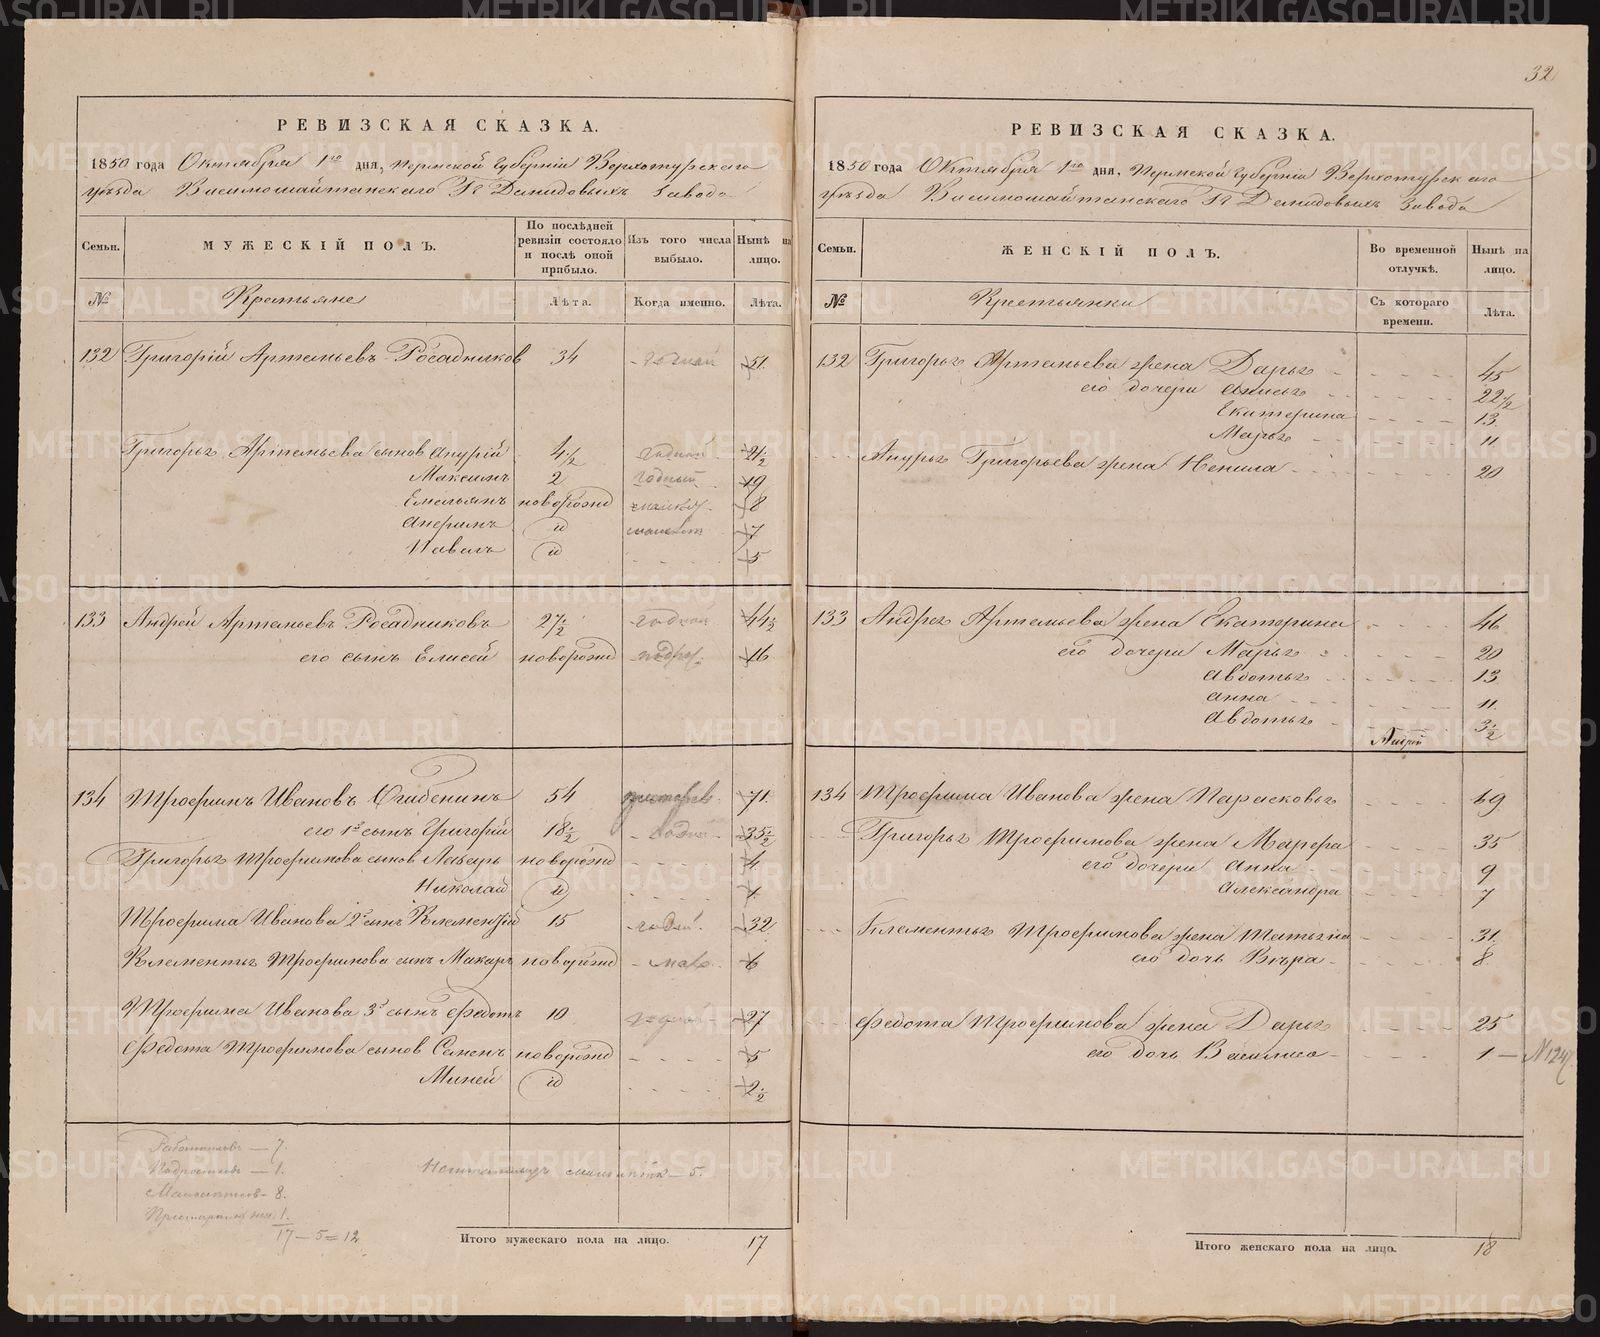 РЕВИЗСКАЯ СКАЗКА.
1850 года Октября 1го дня, Пермской Губерніи Верхотурскаго
уѣзда Висимошайтанскаго Гг Демидовыхъ завода
Семьи.
МУЖЕСКІЙ ПОЛЪ.
По послѣдней ревизіи состояло и послѣ оной прибыло.
Изъ того числа выбыло.
Нынѣ на лицо.
№ Крестьяне Лѣта. Когда именно. Лѣта.
132 Григорій Артемьевъ Росадниковъ 34 годной 51.
Григорья Артемьева сынов 4 1/2 годной 21 1/2
Максимъ 2 годный 19
Емельянъ новорожд 8
новорожд id 7
Павелъ id 5
133 Андрей Артемьевъ Росадниковъ 27 1/2 годной 44 1/2
его сынъ Елисей новорожд 16
134 Трофимъ Ивановъ Огибенинъ 54 71.
его 1й сынъ Григорій 18 1/2 годной 35 1/2
Григорья Трофимова сынов Лазарь новорожд 4
Николай id 1.
Трофима Иванова 2й сынъ Клементій 15 годной 32
Клементья Трофимова сынъ Макаръ новорожд мал 6
Трофима Иванова 3й сынъ Федотъ 10 годной 27
Федота Трофимова сынов Семенъ новорожд 5
Миней id 2 1/2
Работниковъ — 7.
Подростковъ — 1.
Малолѣтковъ 8.
Престарѣлых 1.
17 — 5 = 12
малолѣтк — 5.
Итого мужескаго пола на лицо. 17
32
РЕВИЗСКАЯ СКАЗКА.
1850 года Октября 1го дня, Пермской Губерніи Верхотурскаго
уѣзда Висимошайтанскаго Гг Демидовыхъ завода
Семьи.
ЖЕНСКІЙ ПОЛЪ.
Во временной отлучкѣ.
Нынѣ на лицо.
№ Крестьянки Съ котораго времени. Лѣта.
132 Григорья Артемьева жена Дарья 45
его дочери Анисья 22 1/2
Екатерина 13.
Марья 11
Григорьева жена Ненила 20
133 Андрея Артемьева жена Екатерина 46
его дочери Марья 20
Авдотья 13
Анна 11.
Авдотья 3 1/2
134 Трофима Иванова жена Парасковья 69
Григорья Трофимова жена Марфа 35
его дочери Анна 9
Александра 7
Клементья Трофимова жена Татьяна 31.
его дочь Вѣра 8
Федота Трофимова жена Дарья 25
его дочь Василиса 1 —
Итого женскаго пола на лицо. 18
METRIKI.GASO-URAL.RU